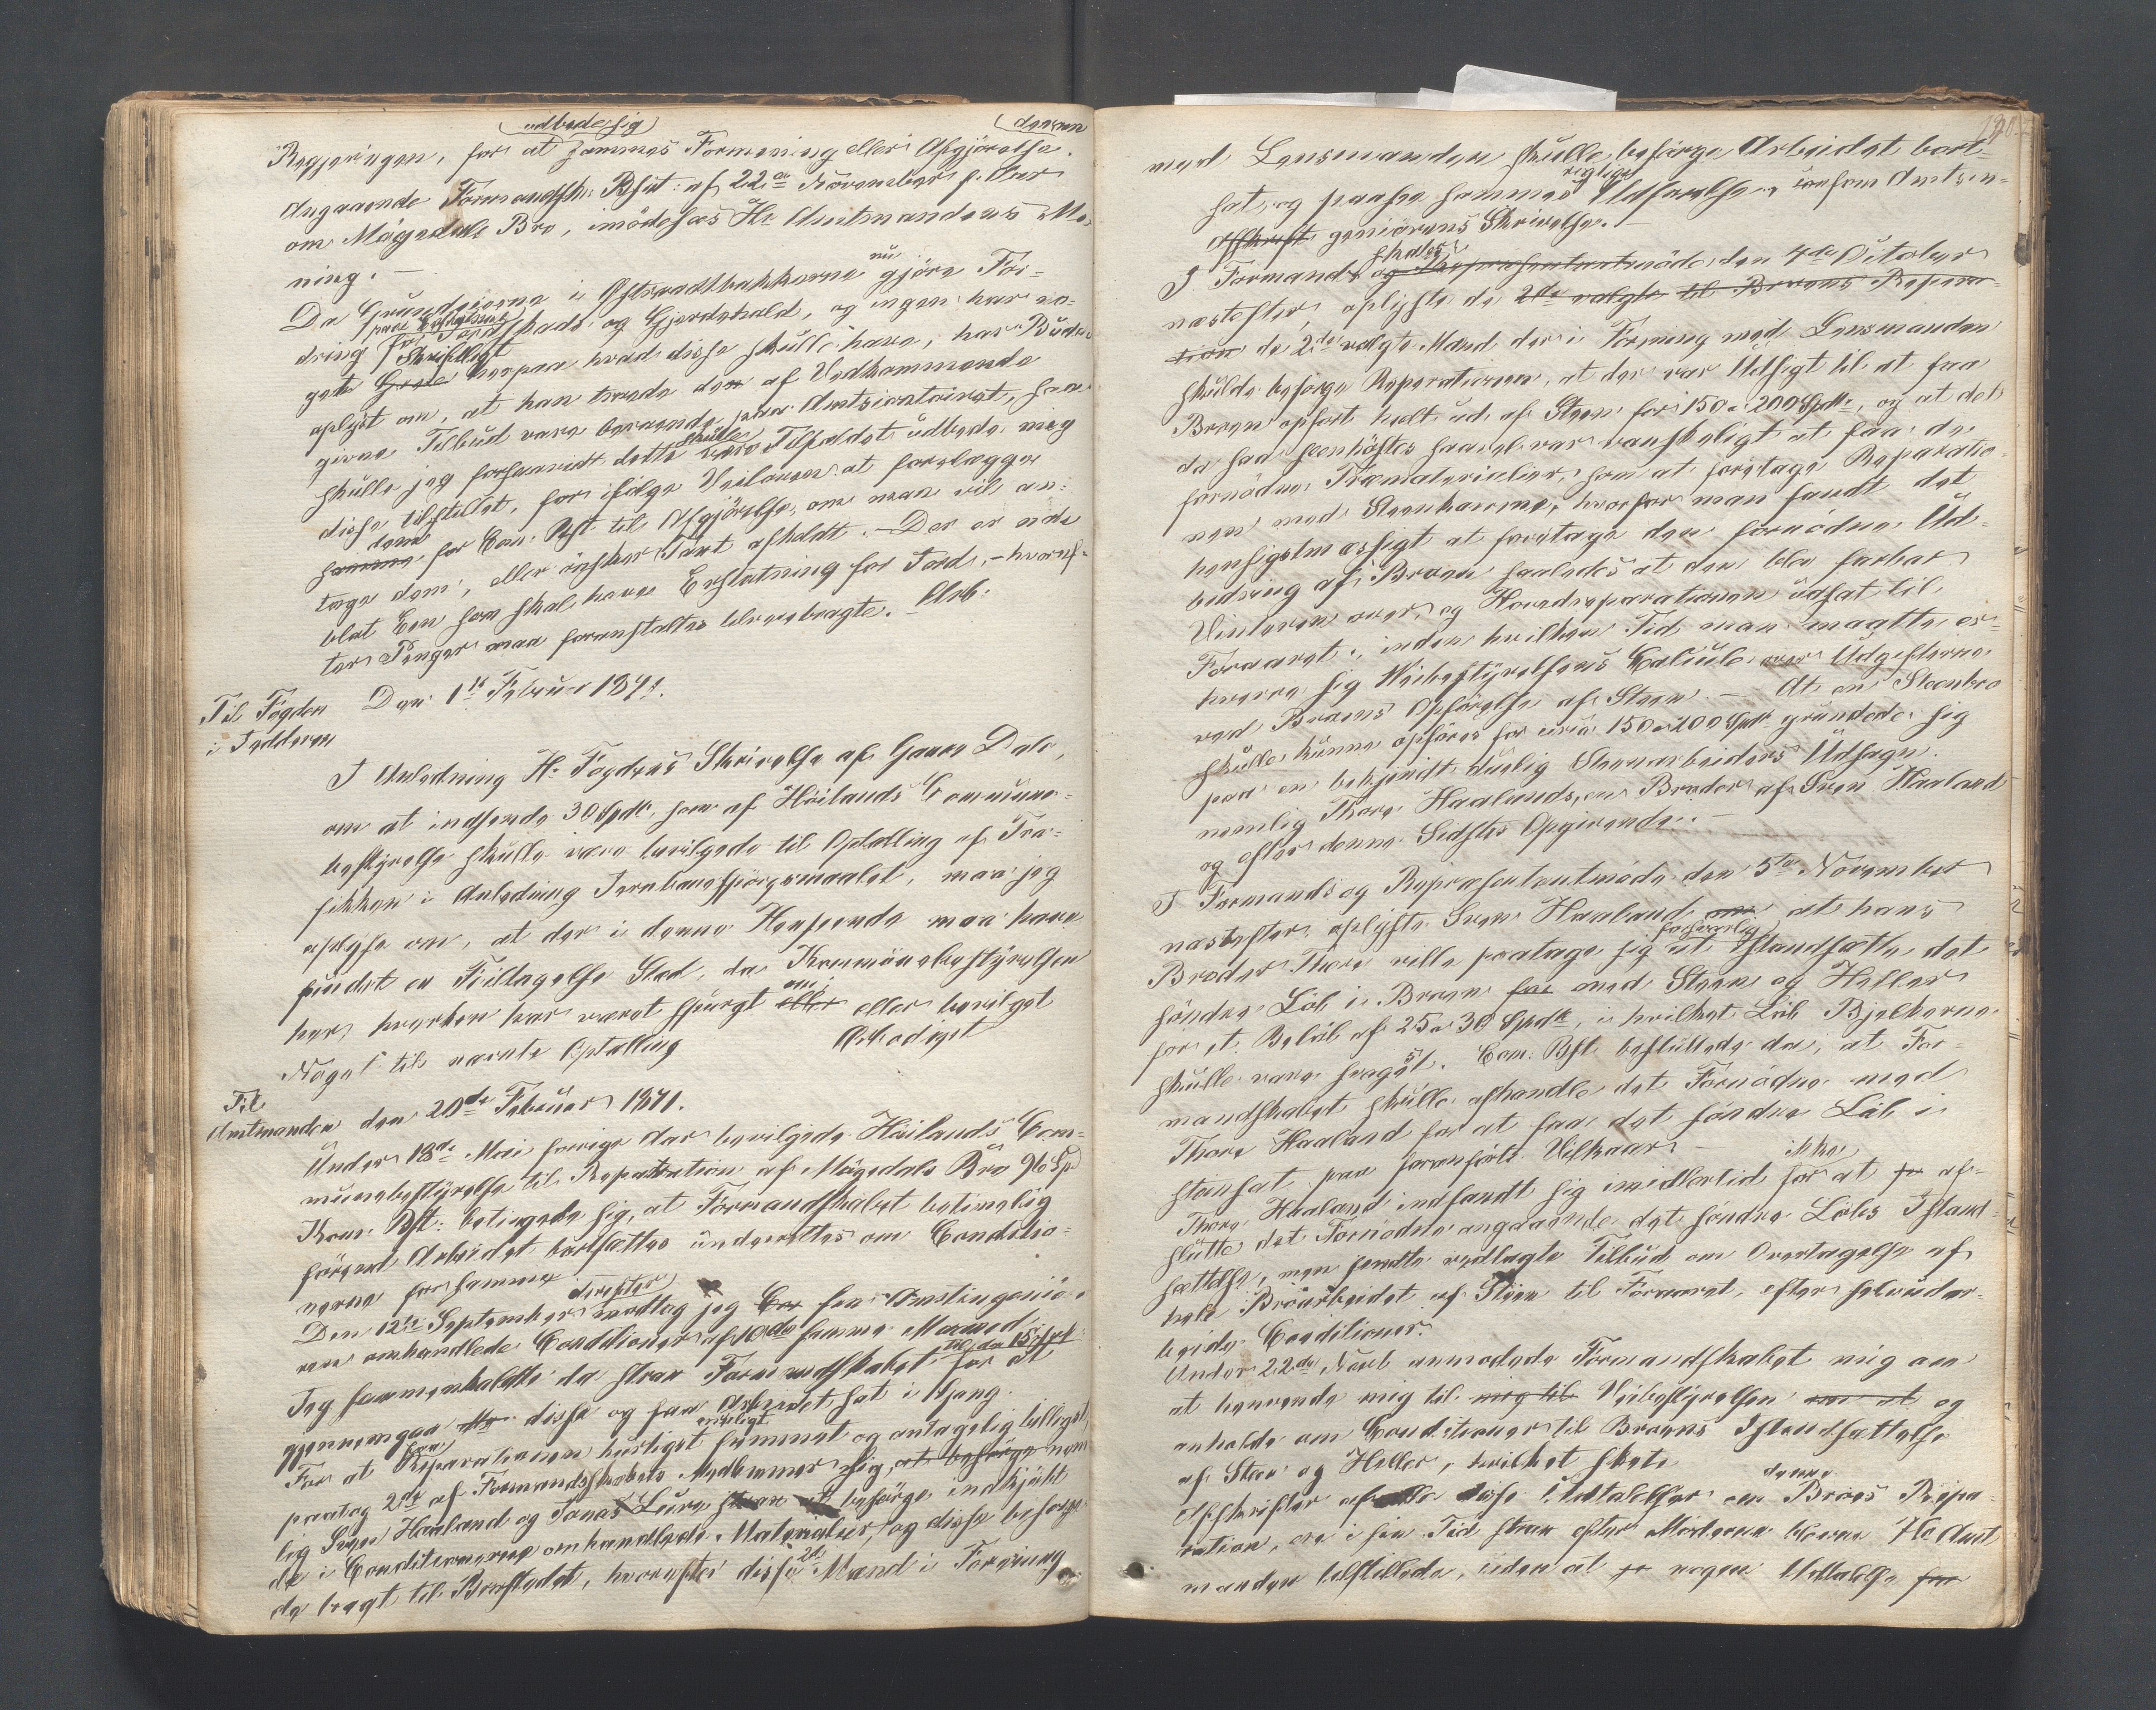 udbede sig derom
Regjeringen, for at sammes Formening eller Afgjörelse.
Angaaende Formandsk: Bsst: af 22de November f. Aar
om Mágedals Bro, imödesees Hr Amtmandens Me-
ning. –
Da Grundeierne i Ofstvadtbakkerne nu gjöre For-
dring paa Godtgjörelse for Jordskade og Gjerdehald, og ingen har no-
get Skriftligt herpaa hvad disse skulle have, har Buden
oplyst om, at han troede de af Vedkommende
givne Tilbud vare beroende paa Amtscontoiret, saa
skulle jeg forsaavidt dette skulle være Tilfældet udbede mig
disse tilstillet, for ifölge Veiloven at forelægge
dem samme for Com. Bst. til Afgjörelse, om man vil an-
tage dem, eller önsker Taxt afholdt. – Der er nok
blot Een som skal have Erstatning for Jord, – hvoref-
ter Penger maa foranstaltes tilveiebragte. Ærb.
Til Fogden Den 1ste Februar 1871.
i Jedderen
I Anledning Hr Fogdens Skrivelse af Gaars Dato,
om at indsende 30 Spdl, som af Höilands Commune-
bestyrelse skulle være bevilgede til Optælling af Tra-
fikken i Anledning Jernbanespörgsmaalet, maa jeg
oplyse om, at der i denne Henseende maa have
fundet en Feiltagelse Sted, da Kommünebestyrelsen
her hverken har været spurgt om eller eller bevilget
Noget til nævnte Optælling Ærbödigst
Til
Amtmanden den 20de Februar 1871.
Under 18de Mai forrige Aar bevilgede Höilands Com-
münebestyrelse til Reparation af Mágedals Bro 96 Spd
Kom. Bst: betingede sig, at Formandskabet betimelig
förend Arbeidet bortsættes underrettes om Conditio-
nerne for samme
Den 12te September derefter modtog jeg fra Amtsingeniö-
ren omhandlede Conditioner af 10de samme Maaned.
Jeg sammenkaldte da strax Formandskabet til den 15de for at
gjennemgaa disse og faa Arbeidet sat i Gang.
For at faa Reparationen hurtigst fremmet og antagelig billigst,
paatog 2de af Formandskabets Medlemmer sig, at besörge nem-
lig Sven Haaland og Jonas Lura at besörge indkjöbt
de i Conditionerne omhandlede Materialier, og disse besörge-
de bragt til Brostedet, hvorefter disse 2de Mænd i Forening
180.
med Lensmanden skulle besörge Arbeidet bort-
sat og paasee sammes rigtige Udförelse, ifölge Amtsin-
geniörens Skrivelse. –
I Formandskabs og Repræsentantmöde den 4de October
næstefter, oplyste de 2de valgte til Broens Repara-
tion de 2de valgte Mænd der i Forening med Lensmanden
skulde besörge Reparationen, at der var Udsigt til at faa
Broen opfört helt ud af Steen for 150 a 200 Spdl, og at det
da saa seenhöstes saavel var vanskeligt at faa de
fornödne Træmaterialier, som at foretage Reparatio-
nen med Steenkarrene, hvorfor man fandt det
hensigtsmæssigt at foretage den fornödne Ud-
bedring af Broen saaledes at den blev farbar
Vinteren over, og Hovedreparationen udsat til
Foraaret, inden hvilken Tid man maatte er-
hverve sig Veibestyrelsens Calcule over Udgifterne
ved Broens Opförelse af Steen. – At en Steenbro
skulle kunne opföres for circa 150 a 200 Spdl grundede sig
paa en bekjendt duelig Steenarbeiders Udsagn.
nemlig Thore Haalands, en Broder af Sven Haaland
og efter denne Sidstes Opgivende. –
I Formands og Repræsentantmöde den 5te November
næstefter, oplyste Sven Haaland at hans
Broder Thore ville paatage sig forsvarlig at istandsætte det
söndre Löb i Broen med Steen og Heller
for et Belöb af 25 a 30 Spdl, i hvilket Löb Bjelkerne
skulle være svagest. Com. Bst. besluttede da, at For-
mandskabet skulle afhandle det Fornödne med
Thore Haaland for at faa det söndre Löb i
stansat paa foranförte Vilkaar –
Thore Haaland indfandt sig imidlertid ikke for at af-
slutte det Fornödne angaaende det söndre Löbs Istand-
sættelse, men sendte vedlagte Tilbud om Overtagelse af
hele Broarbeidet af Steen til Foraaret, efter selvudar-
beidede Conditioner.
Under 22de Novb anmodede Formandskabet mig om
at henvende mig til Veibestyrelsen og
anholde om Conditioner til Broens Istandsættelse
af Steen og Heller, hvilket skete
Afskrifter af alle disse Udtalelser om denne Broes Repa-
ration, ere i sin Tid strax efter Möderne bleven Hr Amt
manden tilstillede, uden at nogen Udtalelse fra